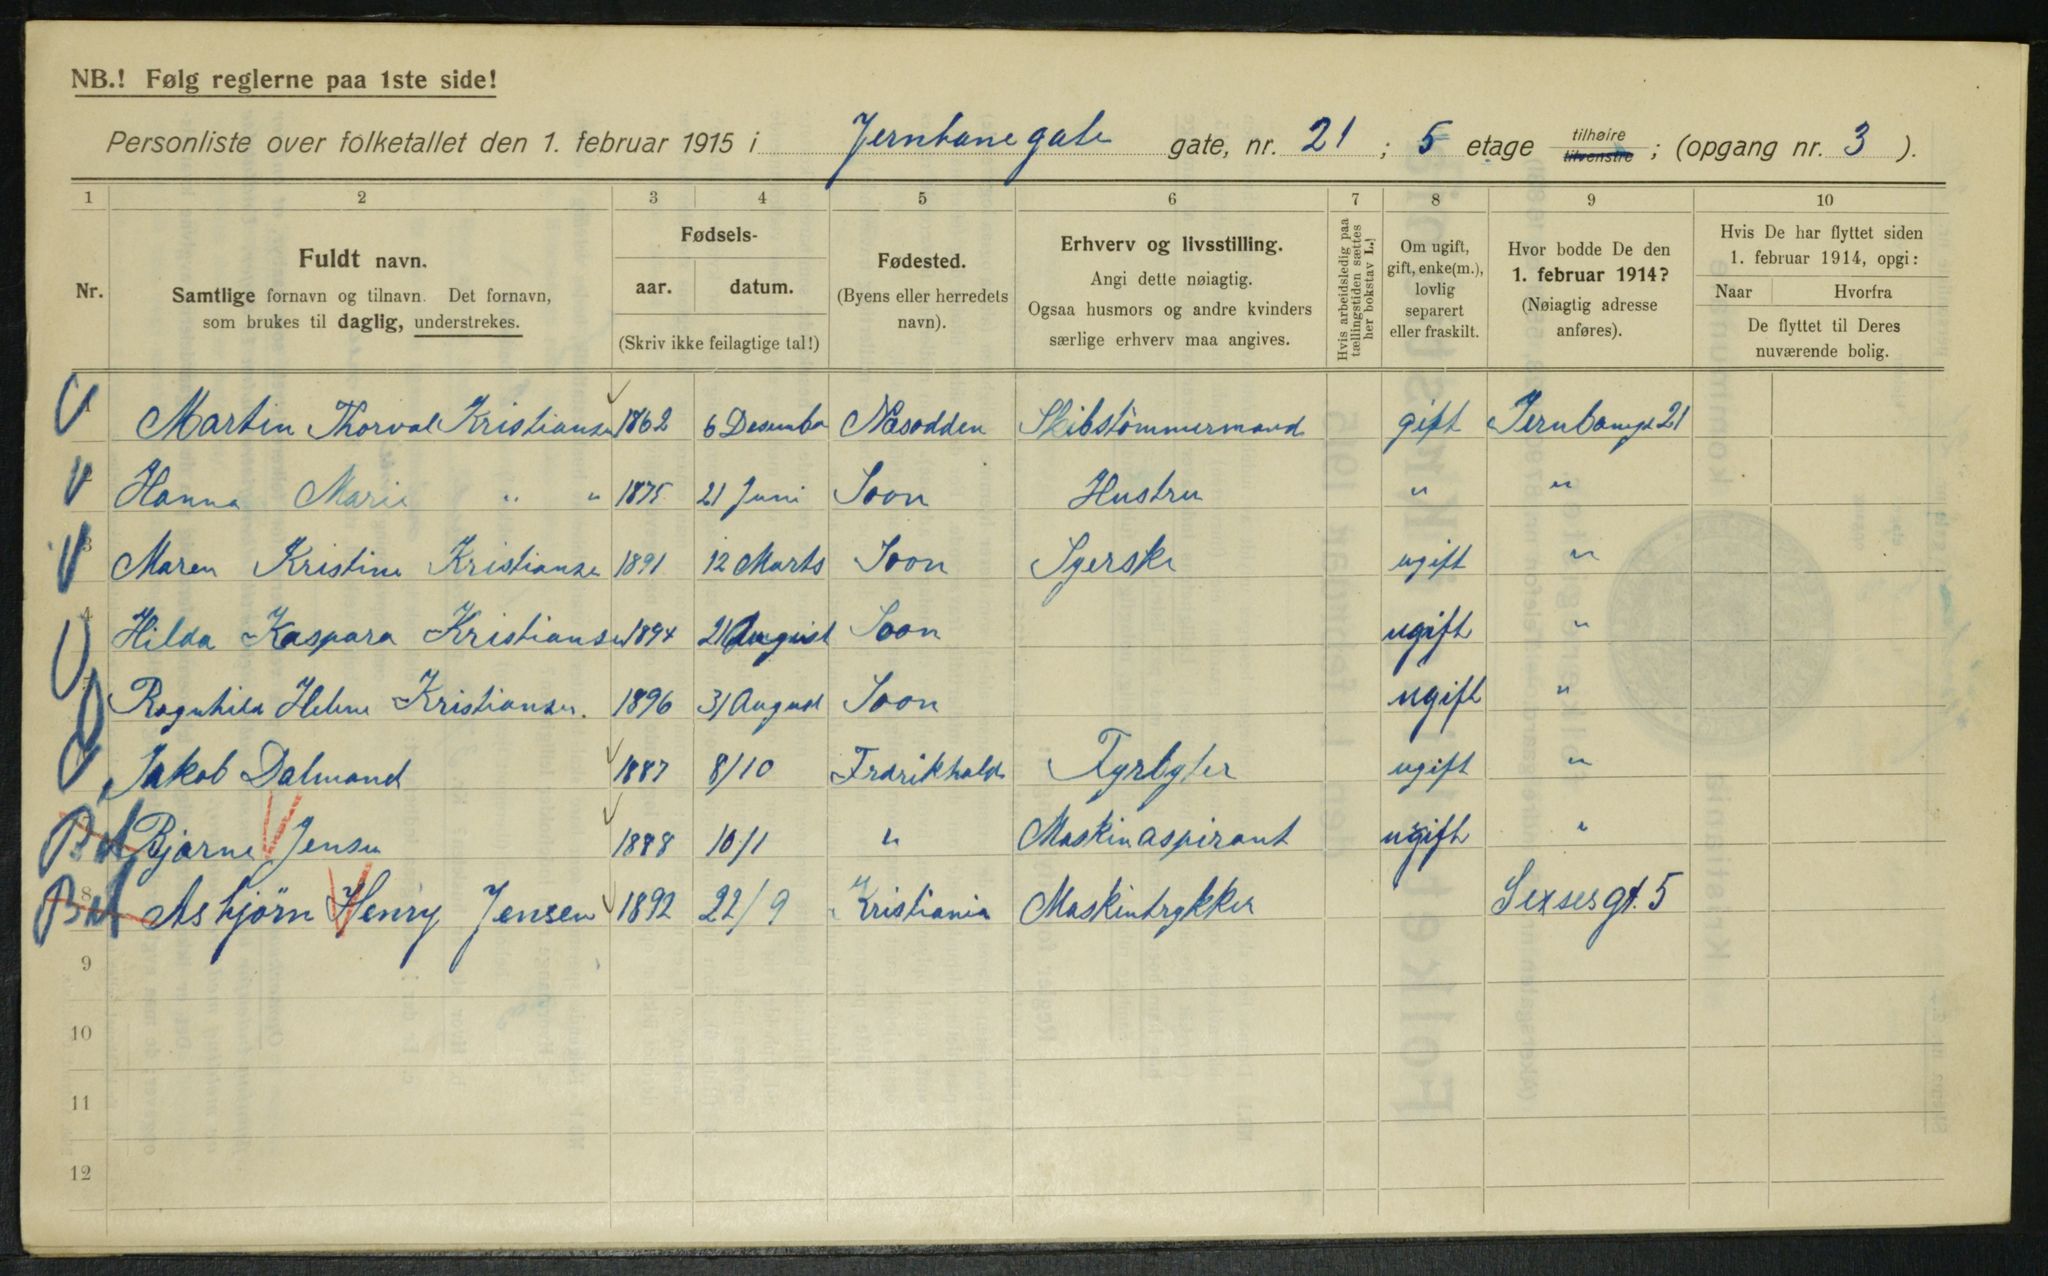 NB.! Følg reglerne paa 1ste side!
Personliste over folketallet den 1. februar 1915 i Jernbanegate gate, nr. 21 ; 5 etage tilhøire tilvenstre ; (opgang nr. 3 ).
1 2 3 4 5 6 7 8 9 10
Nr.
Fuldt navn.
Samtlige fornavn og tilnavn. Det fornavn,
som brukes til daglig, understrekes.
Fødsels-
aar. datum.
(Skriv ikke feilagtige tal!)
Fødested.
(Byens eller herredets
navn).
Erhverv og livsstilling.
Angi dette nøiagtig.
Ogsaa husmors og andre kvinders
særlige erhverv maa angives.
Hvis arbeidsledig paa
tællingstiden sættes
her bokstav L.!
Om ugift,
gift, enke(m.),
lovlig
separert
eller fraskilt.
Hvor bodde De den
1. februar 1914?
(Nøiagtig adresse
anføres).
Hvis De har flyttet siden
1. februar 1914, opgi:
Naar Hvorfra
De flyttet til Deres
nuværende bolig.
1 Martin Thorval Kristiansen 1862 6 Desember Næsodden Skibstömmermand gift Jernbanegt 21
Hanna Marie " " 1875 21 Juni Soon Hustru " "
3 Maren Kristine Kristianse 1891 12 Marts Soon Syerske ugift "
4 Hilda Kaspara Kristiansen 1894 21 August Soon ugift "
Ragnhild Helene Kristiansen. 1896 31 August Soon ugift "
Jakob Dalmand 1887 8/10 Fredrikhald Fyrbyter ugift "
7 Bjarne Jensen 1888 10/1 " Maskinaspirant ugift "
8 Asbjörn Henry Jensen 1892 22/9 Kristiania Maskintrykker Sexesgt. 5
9
10
11
12